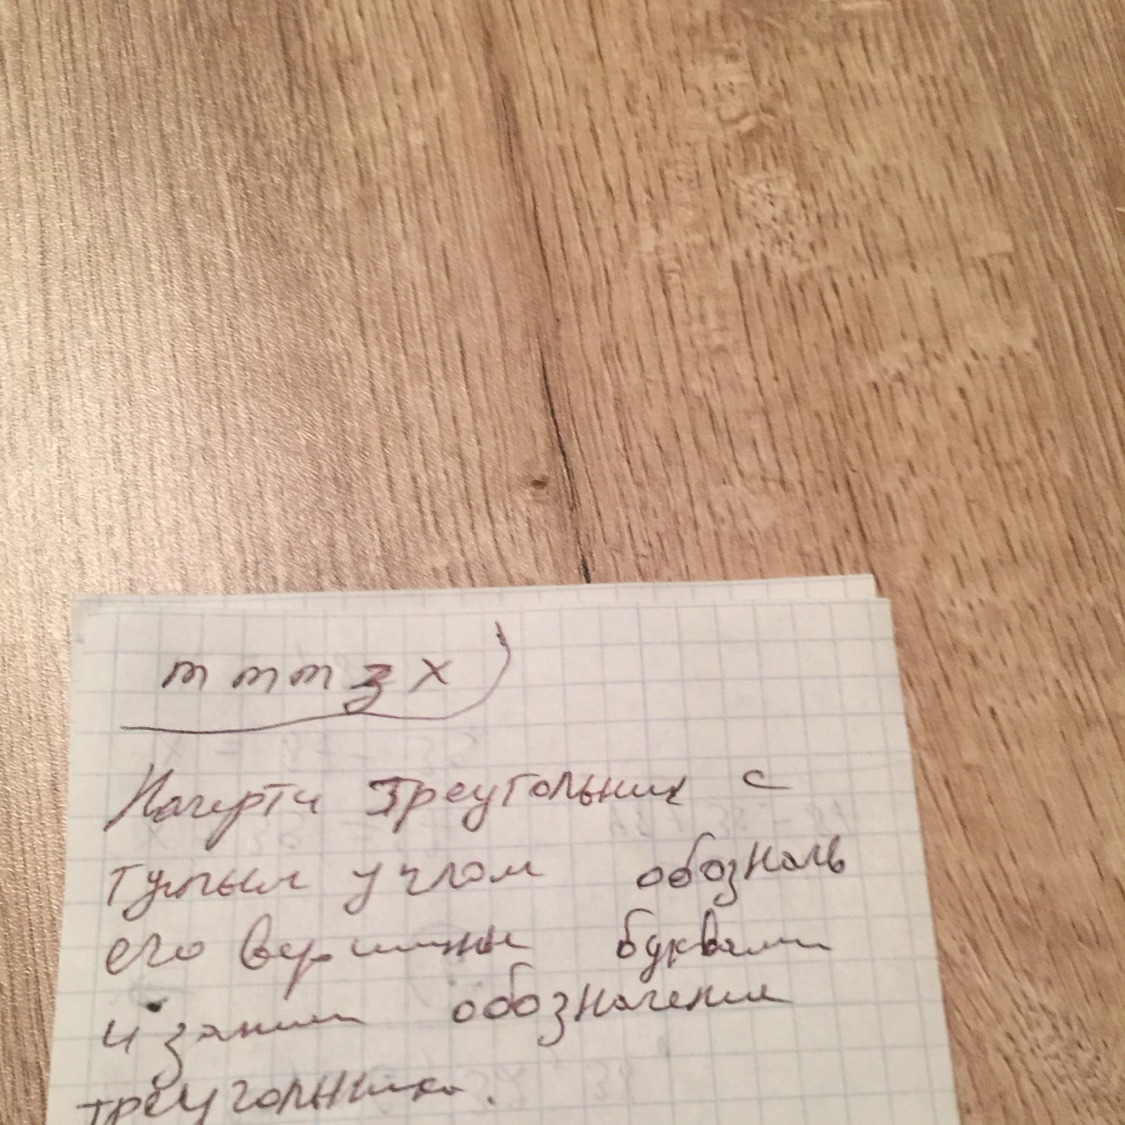 т т т з х)
Начерти треугольник с
тупым углом обозначь
его вершины буквами
и запиши обозначения
треугольника.